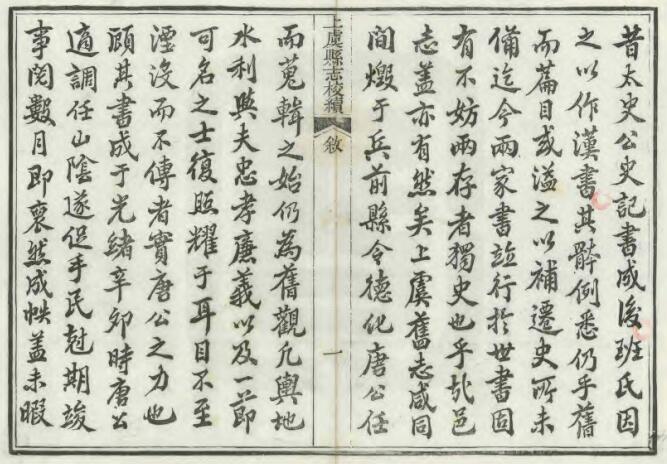 昔太史公史記書成後班氏因
之以作漢書其體例悉仍乎舊
而篇目或溢之以補遷史所未
備迄今兩家書竝行於世書固
有不妨兩存者獨史也乎哉邑
志盖亦有然矣上虞舊志咸同
間燬于兵前縣令德化唐公任
上虞縣志校續
敘
一
而蒐輯之始仍為舊觀凡輿地
水利與夫忠孝廉義以及一芷即
可名之士復照耀于耳目不至
湮沒而不傳者實唐公之力也
顧其書成于光緒辛卯時唐公
適調任山陰遂促手民尅期竣
事閱數月即裒然成帙盖未暇